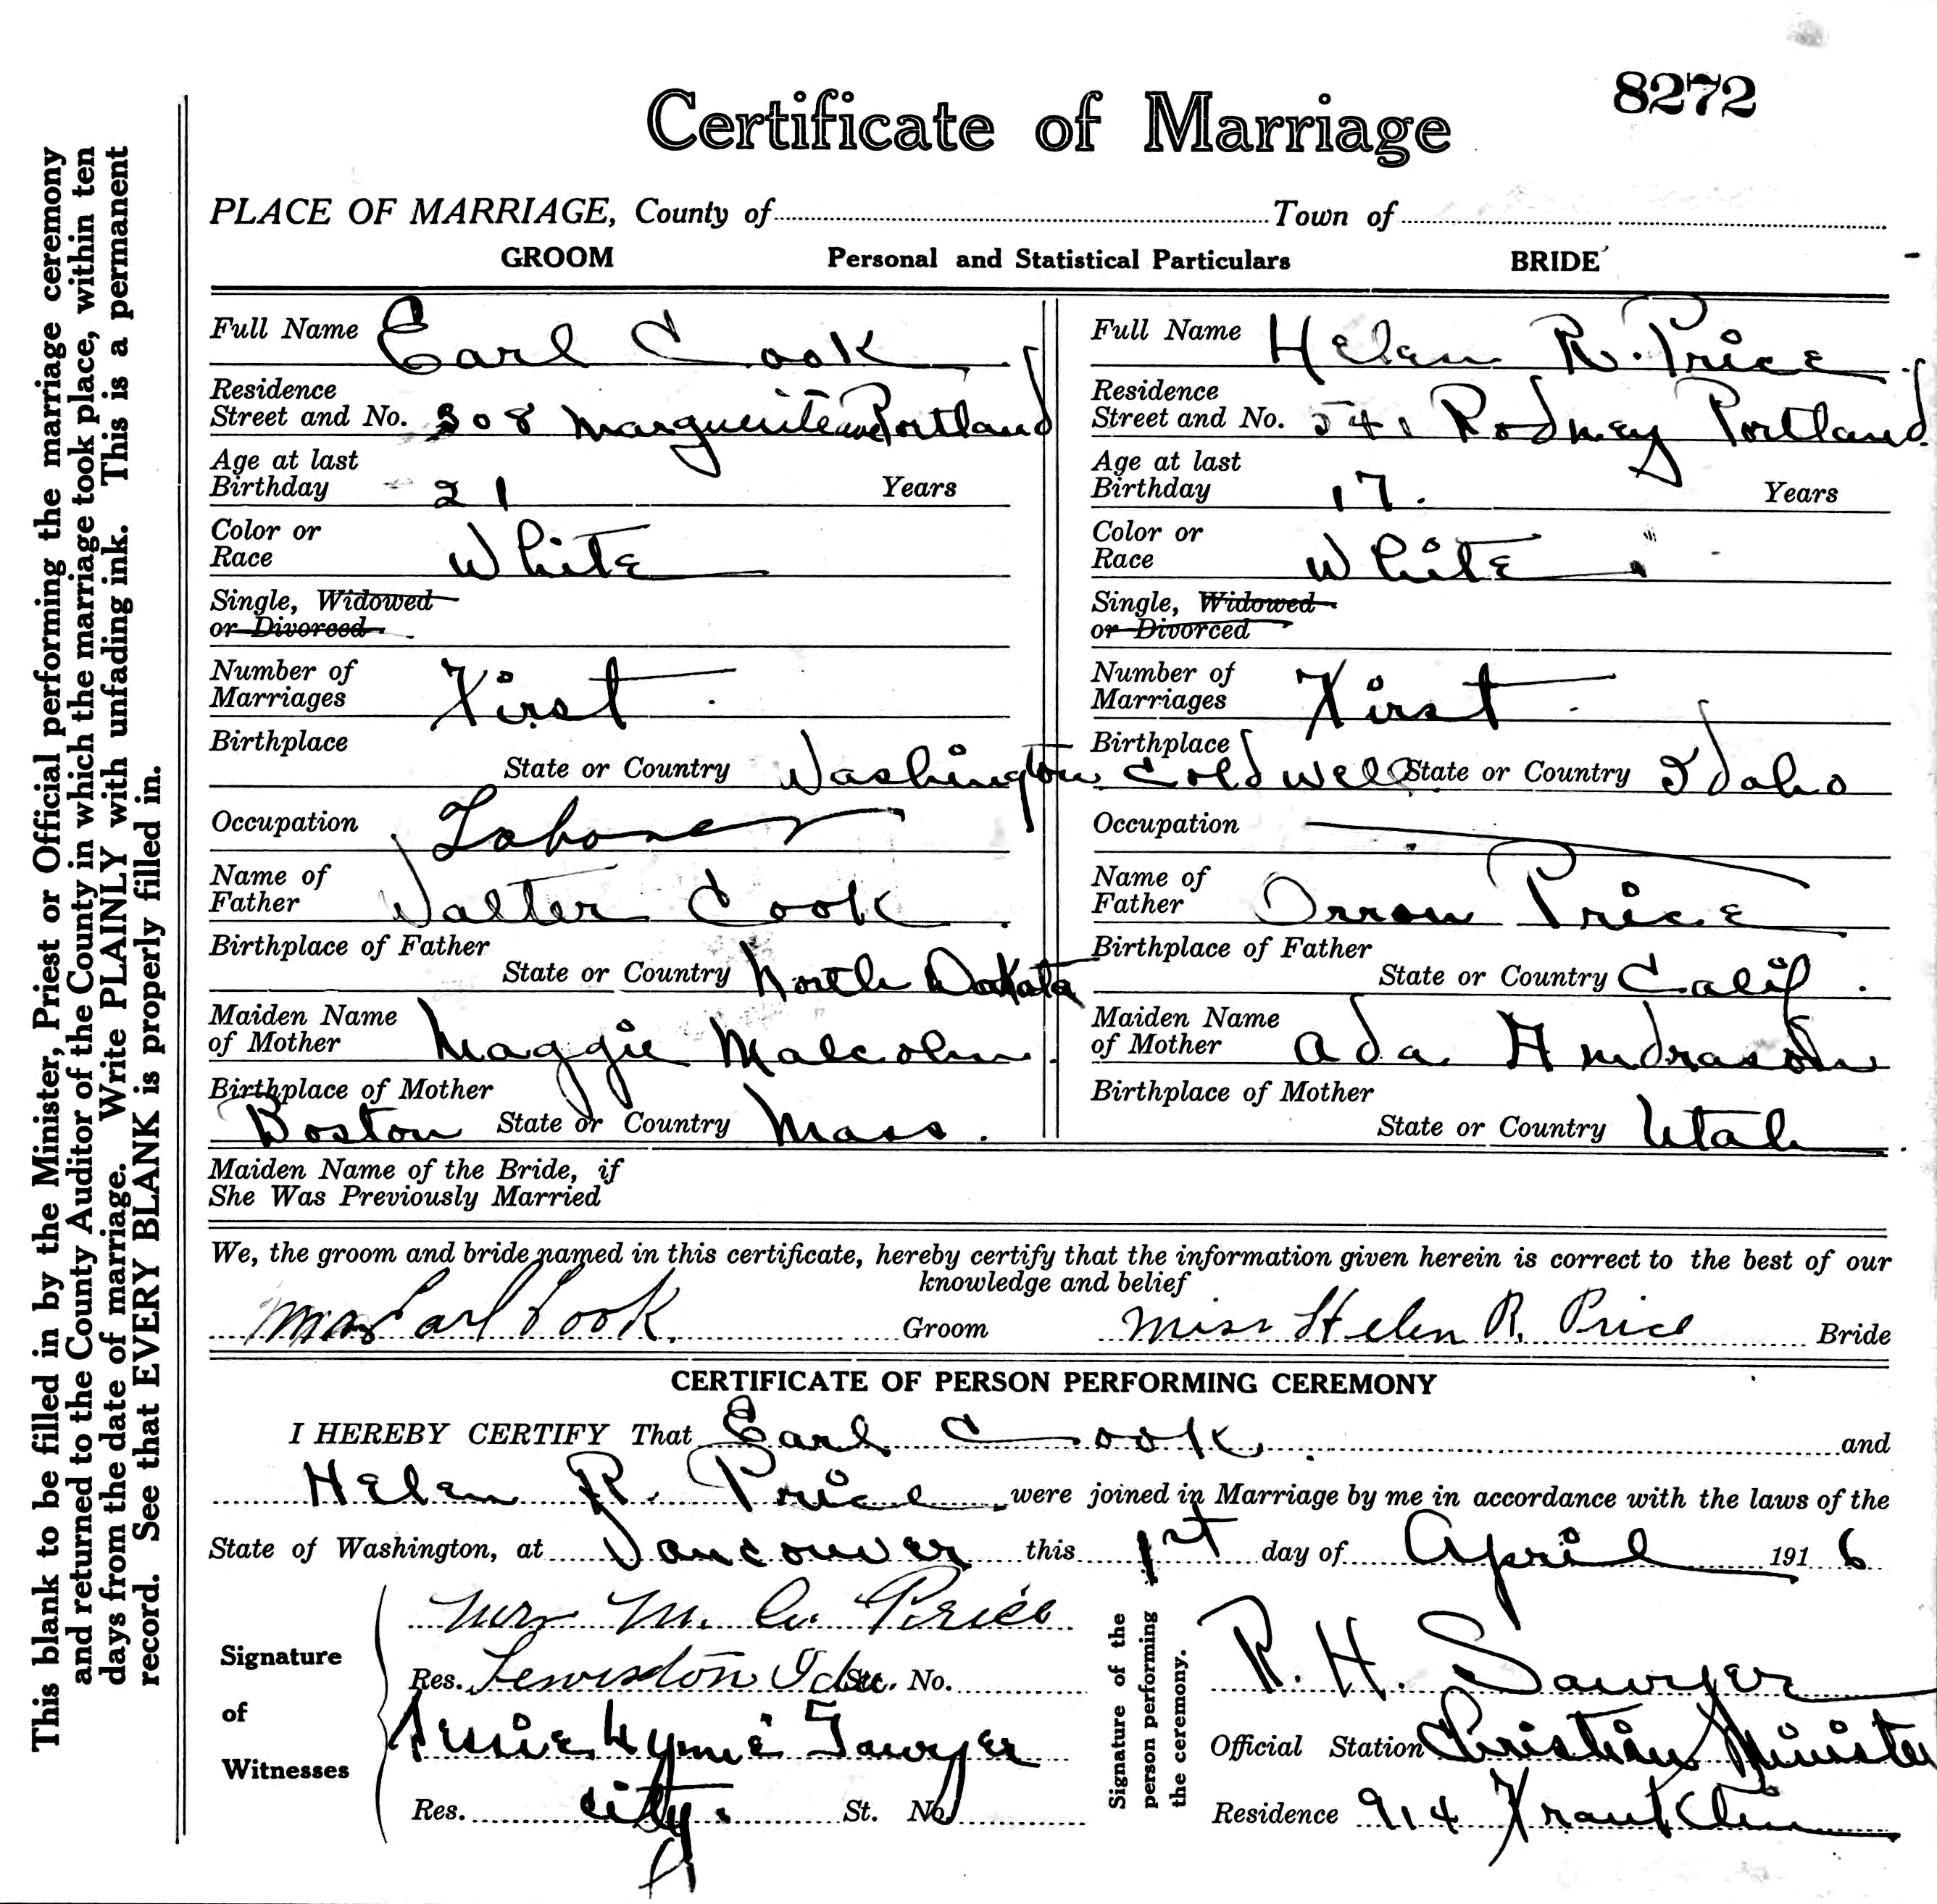 8272
Certificate of Marriage
PLACE OF MARRIAGE, County of Town of
GROOM Personal and Statistical Particulars BRIDE
Full Name Earl Cook Full Name Helen R. Price
Residence Residence
Street and No. 308 Marguerite ave Portland Street and No. 541 Rodney Portland
Age at last Age at last
Birthday 21 Years Birthday 17. Years
Color or Color or
Race White Race White
Single, Widowed Single, Widowed
or Divorced or Divorced
Number of Number of
Marriages First Marriages First
Birthplace Birthplace
State or Country Washington Coldwell State or Country Idaho
Occupation Laborer Occupation
Name of Name of
Father Walter Cook Father Orron Price
Birthplace of Father Birthplace of Father
State or Country North Dakota State or Country Calif.
Maiden Name Maiden Name
of Mother Maggie Malcolm of Mother Ada Andrason
Birthplace of Mother Birthplace of Mother
Boston State or Country Mass. State or Country Utah
Maiden Name of the Bride, if
She Was Previously Married
We, the groom and bride named in this certificate, hereby certify that the information given herein is correct to the best of our
knowledge and belief
Earl Cook. Groom Miss Helen R. Price Bride
CERTIFICATE OF PERSON PERFORMING CEREMONY
I HEREBY CERTIFY That Earl Cook and
Helen R. Price were joined in Marriage by me in accordance with the laws of the
State of Washington, at Vancouver this 1st day of April 1916
Signature of Witnesses
Mrs M. Price
Res. Lewiston Ida St. No.
Sawyer
Res. City. St. No.
Signature of the person performing the ceremony.
R. H. Sawyer
Official Station Christian Minister
Residence 914 Franklin
This blank to be filled in by the Minister, Priest or Official performing the marriage ceremony
and returned to the County Auditor of the County in which the marriage took place, within ten
days from the date of marriage. Write PLAINLY with unfading ink. This is a permanent
record. See that EVERY BLANK is properly filled in.